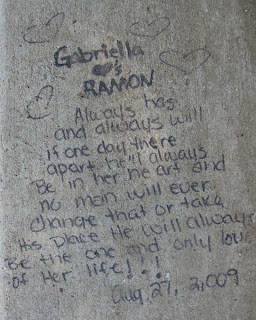 Gabriella
♥'s
RAMON
Always has
and always will
if one day there
apart he'll always
Be in her he art and
no man will ever
change that or take
His Place He will always
Be the one and only love
of Her life!!!
Aug 27, 2,009